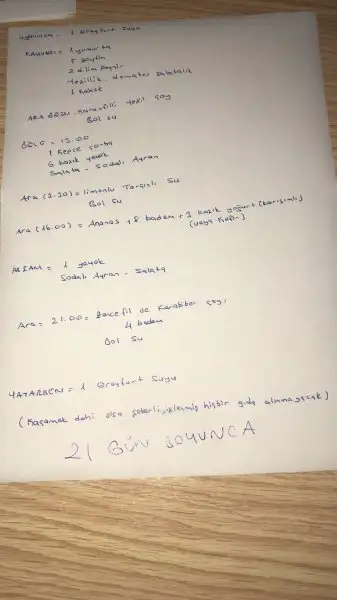 1 Greyfurt Suyu
KAHVALTI = 1 yumurta
5 zeytin
2 dilim peynir
Yeşillik domates salatalık
ARA ÖĞÜN = Karanfilli Yeşil çay
Bol su
ÖĞLE = 13.00
1 kepçe çorba
6 kaşık yemek
Salata - Sodalı Ayran
Ara (3.30) = limonlu Tarçınlı Su
Bol Su
Ara (16.00) = Ananas + 8 badem + 3 kaşık yoğurt (karışımlı)
(veya Kefir)
AKŞAM = 1 yemek
Sodalı Ayran - Salata
Ara = 21.00 = Zencefil ve Karabiber çayı
4 badem
Bol Su
YATARKEN = 1 Greyfurt Suyu
(Kaçamak dahi olsa şekerli, işlenmiş hiçbir gıda alınmayacak)
21 GÜN BOYUNCA